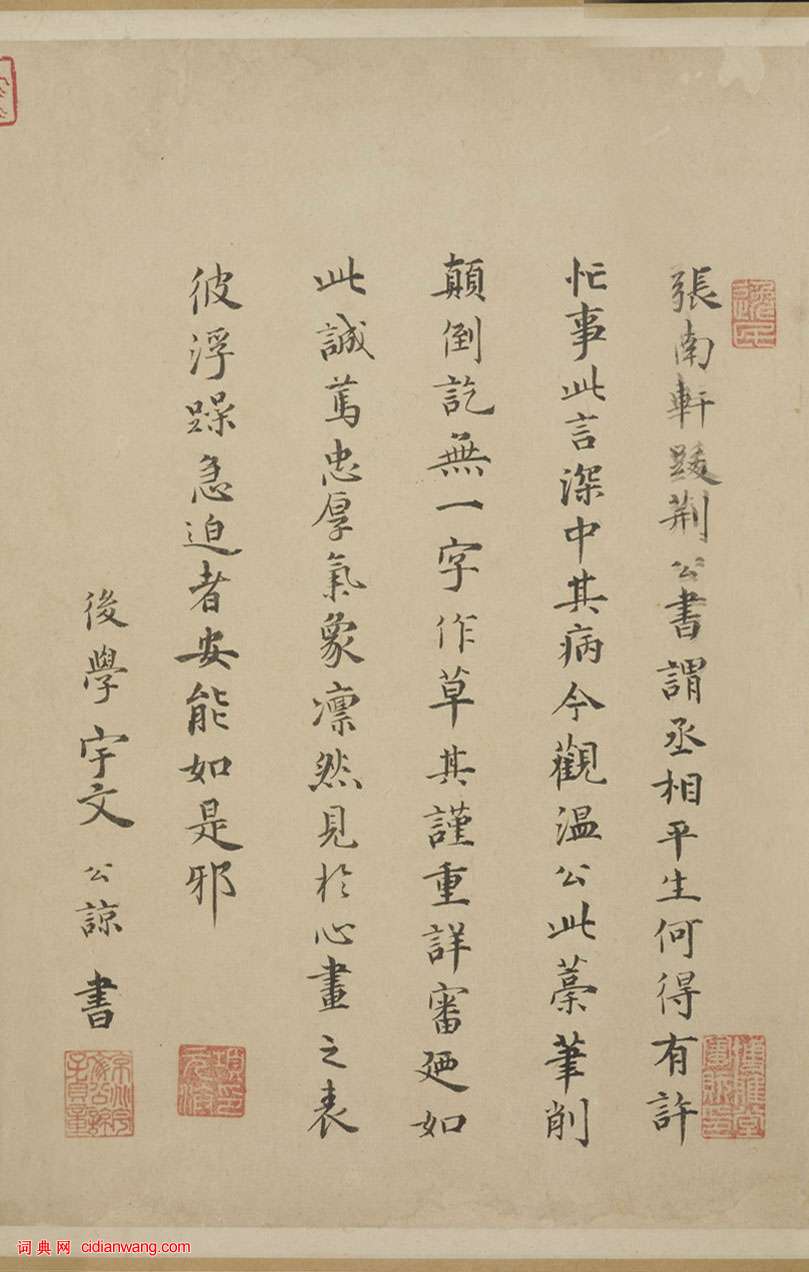 張南軒跋荆公書謂丞相平生何得有許
忙事此言深中其病今觀温公此藁筆削
顛倒訖無一字作草其謹重詳審廼如
此誠篤忠厚氣象凛然見於心畫之表
彼浮躁急迫者安能如是邪
後學宇文公諒書
词典网 cidianwang.com